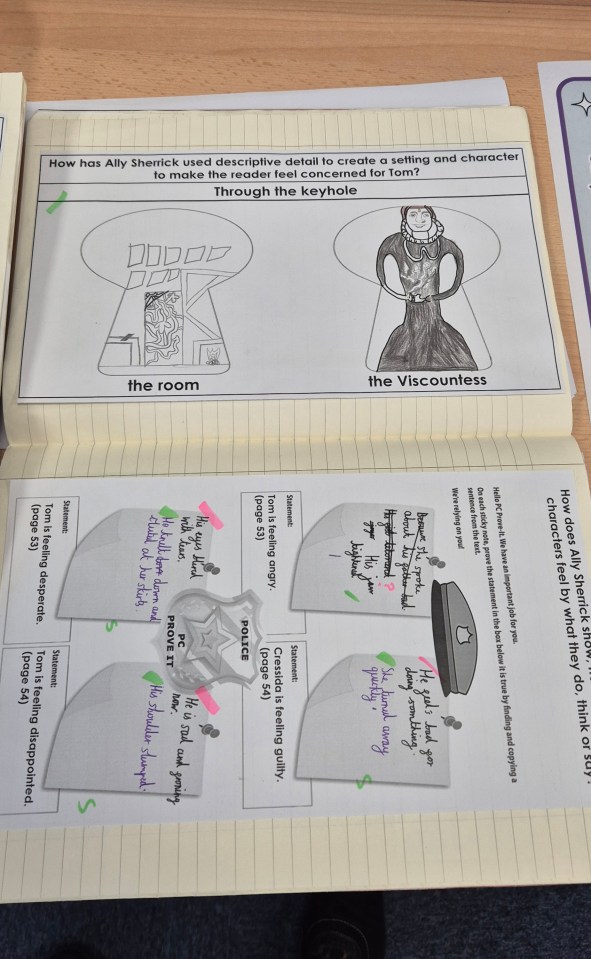 How has Ally Sherrick used descriptive detail to create a setting and character
to make the reader feel concerned for Tom?
Through the keyhole
the room
the Viscountess
How does Ally Sherrick show,
characters feel by what they do, think or say?
Hello PC Prove-It. We have an important job for you.
On each sticky note, prove the statement in the box below it is true by finding and copying a
sentence from the text.
We're relying on you!
Because she spoke
about his
His jaw
tightened
Statement:
Tom is feeling angry.
(page 53)
He feels bad for
doing somthing.
She turned away
quickly,
S
Statement:
Cressida is feeling guilty.
(page 54)
POLICE
PC
PROVE IT
His eyes
with tears.
He knelt down and
at her skirts.
S
Statement:
Tom is feeling desperate.
(page 53)
He is sad and
now.
His shoulder slumped.
S
Statement:
Tom is feeling disappointed.
(page 54)